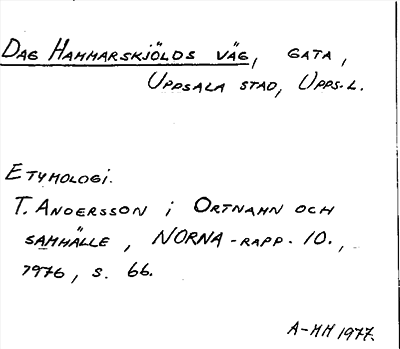 DAG HAMMARSKJÖLDS VÄG, GATA,
UPPSALA STAD, UPPS.L.
ETYMOLOGI.
T. ANDERSSON i ORTNAMN OCH
SAMHÄLLE, NORNA-RAPP. 10.,
1976, S. 66.
A-MH 1977.